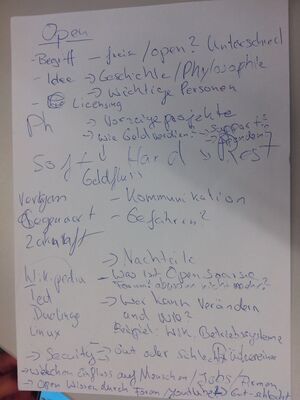 Open
- Begriff - freie/open? Unterschied
- Idee → Geschichte/Phylosophie
→ wichtige Personen
- Licensing
Ph → Vorzeigeprojekte
→ wie Geld verdienen? → Support?
→ Spenden?
Soft Hard → Rest
Geldfluss
Vorteile - Kommunikation
Gegenwart - Gefahren?
Zukunft
→ Nachteile
Wikipedia - Was ist Open Source
Ted → Wer kann Verändern
Duolingo und Wo?
Linux Beispiel: Wiki, Betriebssysteme
→ Security - Gut oder schlecht
→ welchen Einfluss auf Menschen / Jobs / Firmen
→ Open Wissen durch Foren / Gut - schlecht